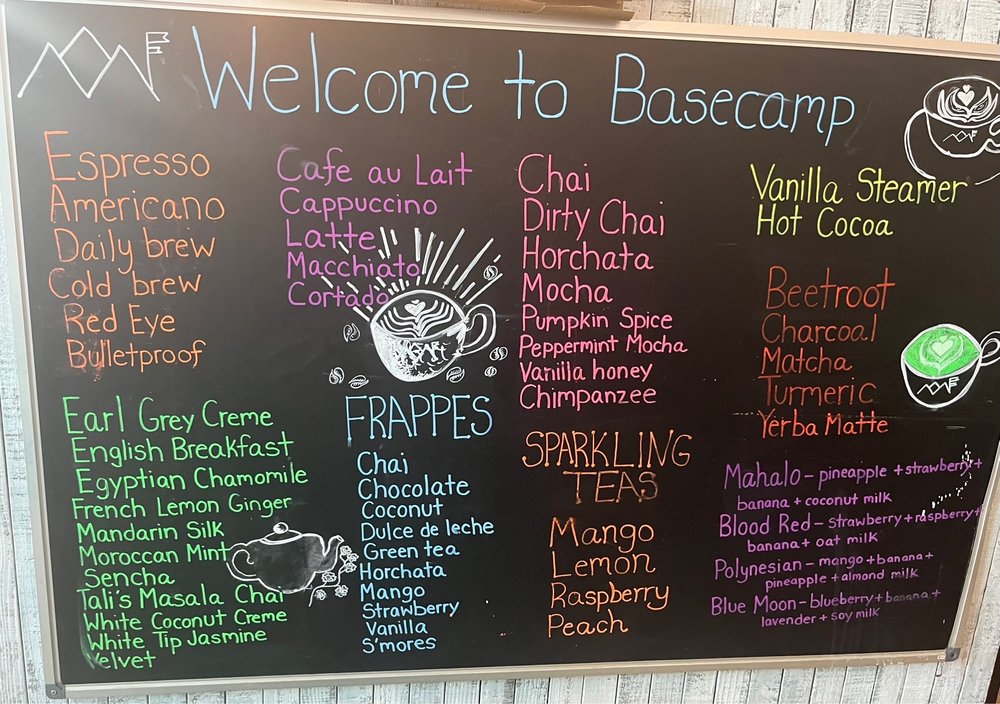 Welcome to Basecamp
Espresso
Americano
Daily brew
Cold brew
Red Eye
Bulletproof
Cafe au Lait
Cappuccino
Latte
Macchiato
Cortado
Chai
Dirty Chai
Horchata
Mocha
Pumpkin Spice
Peppermint Mocha
Vanilla honey
Chimpanzee
Vanilla Steamer
Hot Cocoa
Beetroot
Charcoal
Matcha
Turmeric
Yerba Matte
Earl Grey Creme
English Breakfast
Egyptian Chamomile
French Lemon Ginger
Mandarin Silk
Moroccan Mint
Sencha
Tali's Masala Chai
White Coconut Creme
White Tip Jasmine
Velvet
FRAPPES
Chai
Chocolate
Coconut
Dulce de leche
Green tea
Horchata
Mango
Strawberry
Vanilla
S'mores
SPARKLING
TEAS
Mango
Lemon
Raspberry
Peach
Mahalo - pineapple + strawberry +
banana + coconut milk
Blood Red - strawberry + raspberry +
banana + oat milk
Polynesian - mango + banana +
pineapple + almond milk
Blue Moon - blueberry + banana +
lavender + soy milk